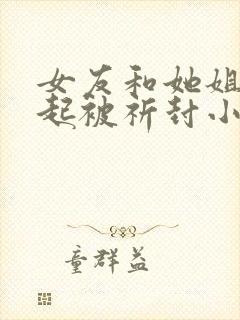 女友和她姐
起被祈封小
童群益